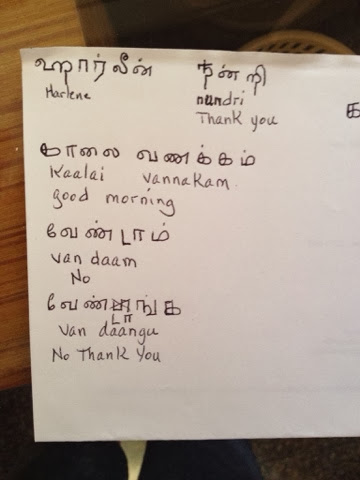 ஹார்லீன் நன்றி
Harlene nundri
Thank you
க
காலை வணக்கம்
Kaalai vannakam.
good morning
வேண்டாம்
van daam
No
வேண்டாங்க
van daangu
No Thank You